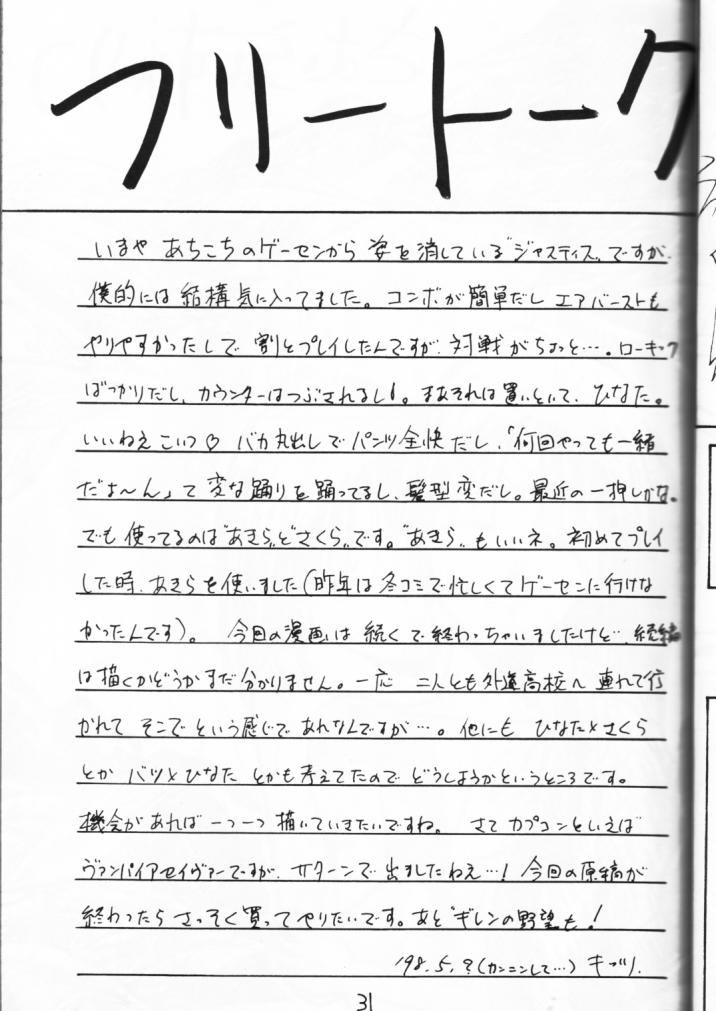 フリートーク
いまや あちこちのゲーセンから 姿を消している"ジャスティス"ですが
僕的には 結構気に入ってました。コンボが簡単だし エアバーストも
やりやすかったしで 割とプレイしたんですが、対戦がちょっと…。ローキック
ばっかりだし、カウンターはつぶされるし!。まあそれは置いといて、ひなた。
いいねえこいつ♡ バカ丸出しでパンツ全快だし、「何回やっても一緒
だよ〜ん」て 変な踊りを踊ってるし、髪型変だし。最近の一押しかな。
でも使ってるのは"あきら"と"さくら"です。"あきら"もいいネ。初めてプレイ
した時、あきらを使いました(昨年は冬コミで忙しくてゲーセンに行けな
かったんです)。 今回の漫画は 続くで終わっちゃいましたけど、続編
は描くかどうかまだ分かりません。一応 二人とも外道高校へ 連れて行
かれて そこで という感じで あれなんですが…。他にも ひなた×さくら
とか バツ×ひなた とかも考えてたので どうしようかというところです。
機会があれば 一つ一つ 描いていきたいですね。 さて カプコンといえば
ヴァンパイアセイヴァーですが、サターンで 出ましたねえ…! 今回の原稿が
終わったら さっそく買ってやりたいです。あと"ギレンの野望"も!
'98.5.?(カンニンして…)
31